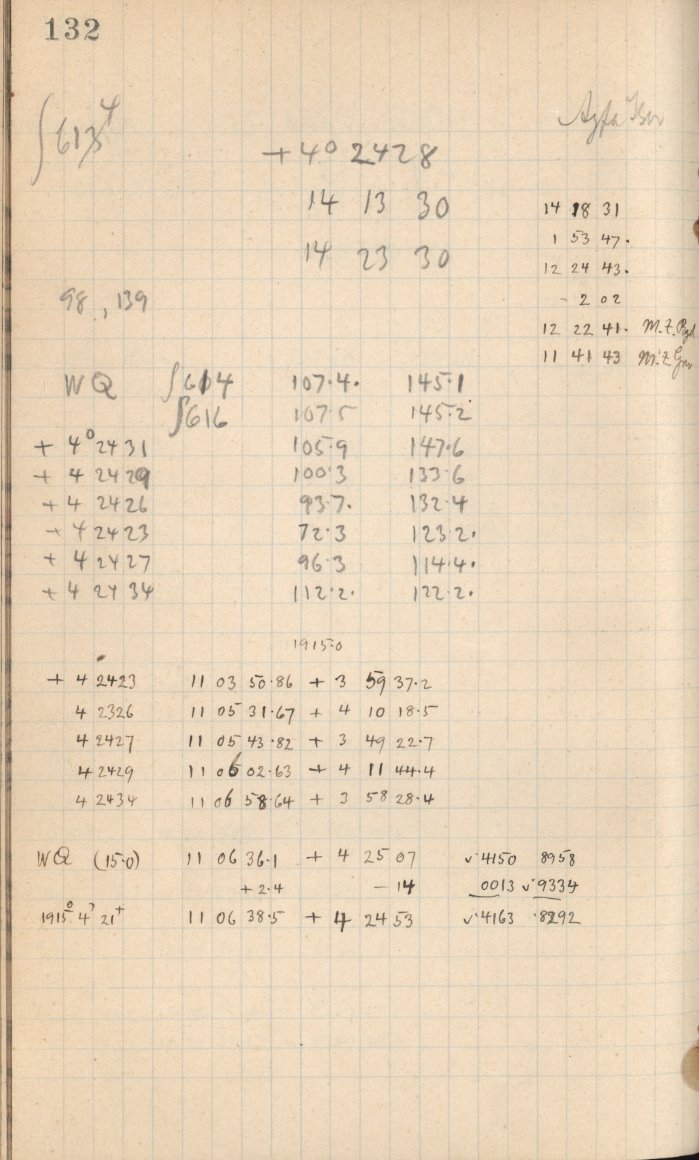 132
∫613⁴
Agfa Isor
+ 4° 2428
14 13 30
14 23 30
14 18 31
1 53 47.
12 24 43.
- 2 02
12 22 41. M.Z.
11 41 43 M.Z.
98, 139
WQ ∫614 107.4. 145.1
∫616 107.5 145.2
+ 4° 2431 105.9 147.6
+ 4 2429 100.3 133.6
+ 4 2426 93.7. 132.4
+ 4 2423 72.3 123.2.
+ 4 2427 96.3 114.4.
+ 4 2434 112.2. 122.2.
1915.0
+ 4 2423 11 03 50.86 + 3 59 37.2
4 2326 11 05 31.67 + 4 10 18.5
4 2427 11 05 43.82 + 3 49 22.7
4 2429 11 06 02.63 + 4 11 44.4
4 2434 11 06 58.64 + 3 58 28.4
WQ (15.0) 11 06 36.1 + 4 25 07 √4150 8958
+ 2.4 - 14 0013 √9334
1915.0 4 21 11 06 38.5 + 4 24 53 √4163 .8292